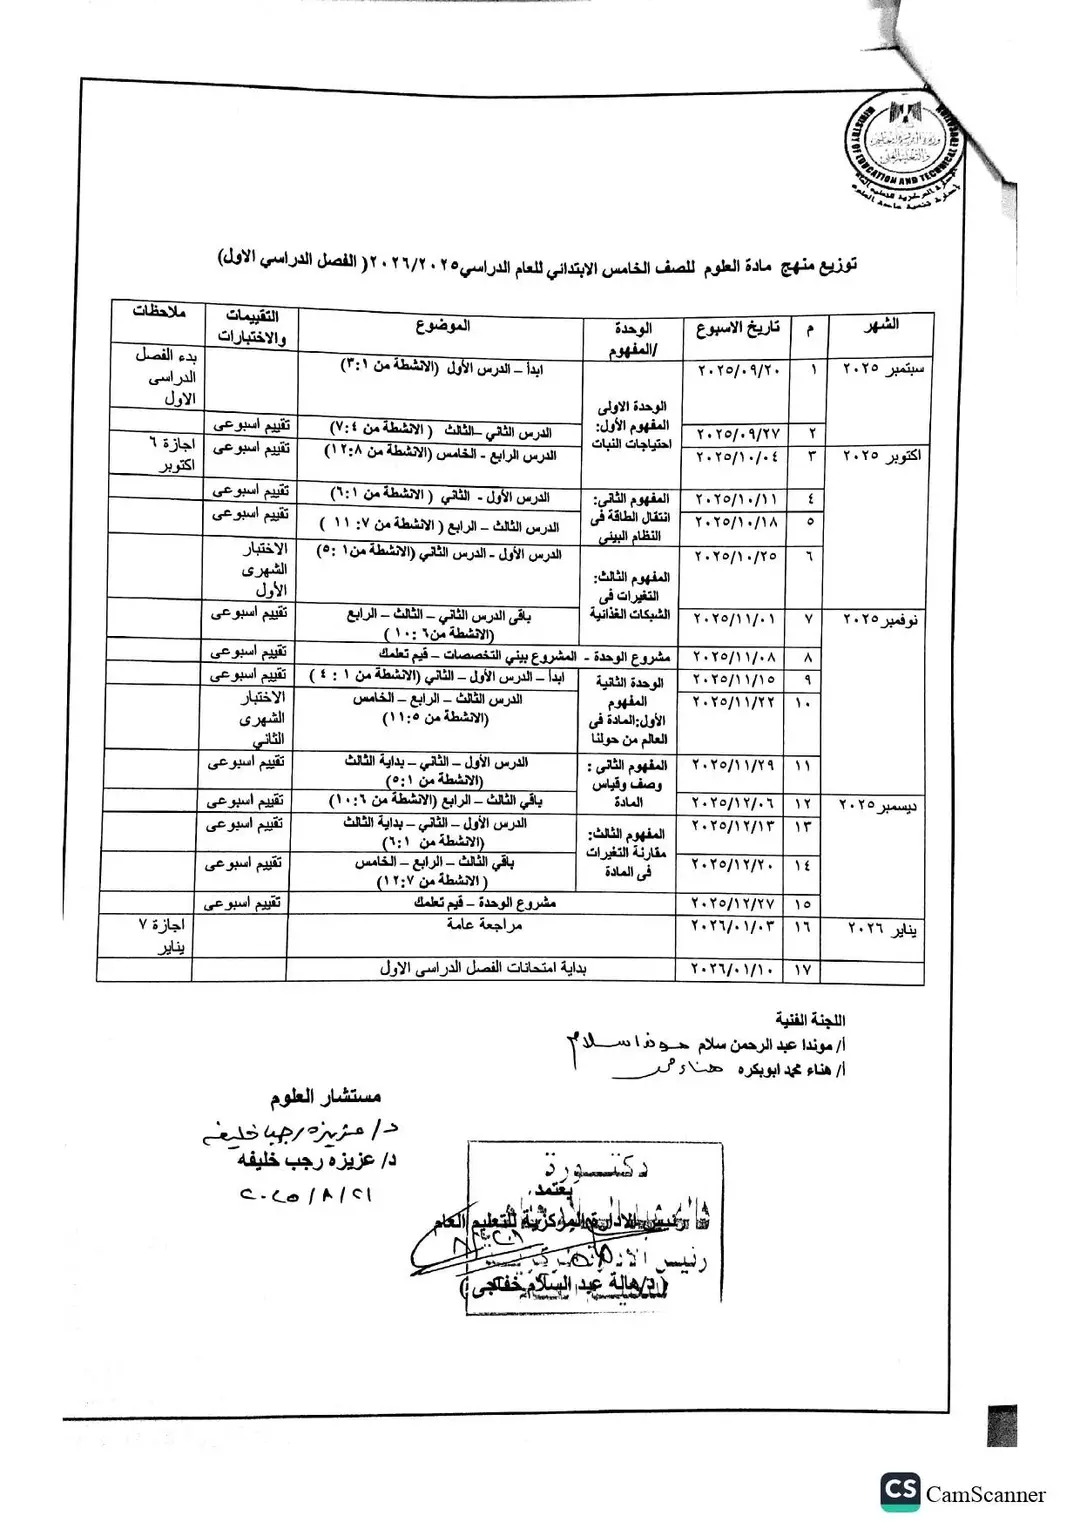 MINISTRY OF EDUCATION AND TECHNICAL EDUCATION
وزارة التربية والتعليم
والتعليم الفني
توزيع منهج مادة العلوم للصف الخامس الابتدائي للعام الدراسي ٢٠٢٦/٢٠٢٥( الفصل الدراسي الاول)
الشهر م تاريخ الاسبوع الوحدة /المفهوم الموضوع التقييمات والاختبارات ملاحظات
سبتمبر ٢٠٢٥ ١ ٢٠٢٥/٠٩/٢٠ الوحدة الاولى المفهوم الأول: احتياجات النبات ابدأ – الدرس الأول (الانشطة من ٣:١) بدء الفصل الدراسى الاول
٢ ٢٠٢٥/٠٩/٢٧ الدرس الثاني –الثالث ( الانشطة من ٧:٤) تقييم اسبوعى
اكتوبر ٢٠٢٥ ٣ ٢٠٢٥/١٠/٠٤ الدرس الرابع - الخامس (الانشطة من ١٢:٨) تقييم اسبوعى اجازة ٦ اكتوبر
٤ ٢٠٢٥/١٠/١١ المفهوم الثانى: انتقال الطاقة فى النظام البيني الدرس الأول - الثاني ( الانشطة من ٦:١) تقييم اسبوعى
٥ ٢٠٢٥/١٠/١٨ الدرس الثالث – الرابع ( الانشطة من ٧: ١١ ) تقييم اسبوعى
٦ ٢٠٢٥/١٠/٢٥ المفهوم الثالث: التغيرات فى الشبكات الغذائية الدرس الأول - الدرس الثاني (الانشطة من١ :٥) الاختبار الشهرى الأول
نوفمبر ٢٠٢٥ ٧ ٢٠٢٥/١١/٠١ باقى الدرس الثاني – الثالث – الرابع (الانشطة من٦ :١٠ ) تقييم اسبوعى
٨ ٢٠٢٥/١١/٠٨ مشروع الوحدة - المشروع بيني التخصصات – قيم تعلمك تقييم اسبوعى
٩ ٢٠٢٥/١١/١٥ الوحدة الثانية المفهوم الأول:المادة فى العالم من حولنا ابدأ – الدرس الأول – الثاني (الانشطة من ١ : ٤ ) تقييم اسبوعى
١٠ ٢٠٢٥/١١/٢٢ الدرس الثالث – الرابع – الخامس (الانشطة من ١١:٥) الاختبار الشهرى الثاني
١١ ٢٠٢٥/١١/٢٩ المفهوم الثانى : وصف وقياس المادة الدرس الأول – الثاني – بداية الثالث (الانشطة من ٥:١) تقييم اسبوعى
ديسمبر ٢٠٢٥ ١٢ ٢٠٢٥/١٢/٠٦ باقي الثالث – الرابع (الانشطة من ١٠:٦) تقييم اسبوعى
١٣ ٢٠٢٥/١٢/١٣ المفهوم الثالث: مقارنة التغيرات فى المادة الدرس الأول – الثاني – بداية الثالث (الانشطة من ٦:١) تقييم اسبوعى
١٤ ٢٠٢٥/١٢/٢٠ باقي الثالث – الرابع – الخامس ( الانشطة من ١٢:٧) تقييم اسبوعى
١٥ ٢٠٢٥/١٢/٢٧ مشروع الوحدة – قيم تعلمك تقييم اسبوعى
يناير ٢٠٢٦ ١٦ ٢٠٢٦/٠١/٠٣ مراجعة عامة اجازة ٧ يناير
١٧ ٢٠٢٦/٠١/١٠ بداية امتحانات الفصل الدراسى الاول
اللجنة الفنية
أ/ موندا عبد الرحمن سلام
أ/ هناء محمد ابوبكره
مستشار العلوم
د/ عزيزه رجب خليفه
د/ عزيزه رجب خليفه
٢٠٢٥/٨/٢١
دكتورة
يعتمد،
رئيس الادارة المركزية للتعليم العام
( د/هالة عبد السلام خفاجى )
CS CamScanner